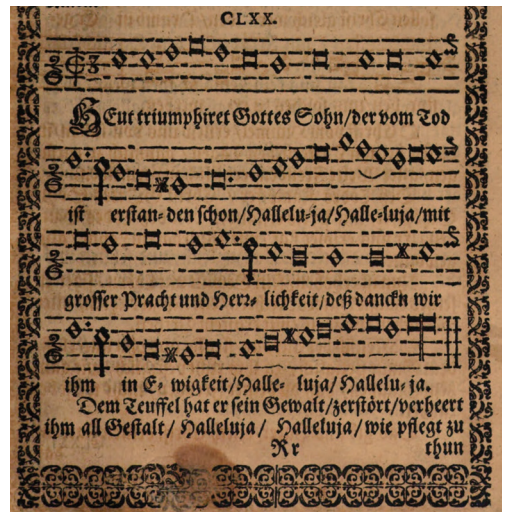 CLXX.
HEut triumphiret Gottes Sohn/der vom Tod
ist erstan-den schon/Hallelu-ja/Halle-luja/mit
grosser Pracht und Herr- lichkeit/deß danckn wir
ihm in E- wigkeit/Halle- luja/Hallelu-ja.
Dem Teuffel hat er sein Gewalt/zerstört/verheert
ihm all Gestalt/ Halleluja/ Halleluja/wie pflegt zu
Rr thun